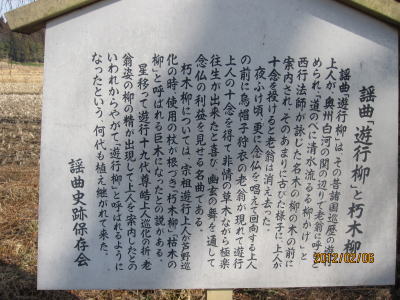 謡曲「遊行柳」と朽木柳
謡曲「遊行柳」は、その昔諸国巡歴の遊行
上人が、奥州白河の関の辺りで老翁に呼びと
められ、「道のべに清水流るゝ柳かげ」と
西行法師が詠じた名木の柳の木の前に
案内され、そのあまりに古びた様子に上人が
十念を授けると老翁は消え去った。
夜ふけ頃、更に念仏を唱えて回向する上人
の前に烏帽子狩衣の老翁が現れて遊行
上人の十念を得て非情の草木ながら極楽
往生が出来たと喜び幽玄の舞を通して
念仏の利益を見せる名曲である。
朽木柳については、宗祖遊行上人が芦野巡
化の時、使用の杖が根づき「朽木柳」「枯木の
柳」と呼ばれる巨木になったとの説がある。
星移って遊行十九代尊皓上人巡化の折、老
翁姿の柳の精が出現して上人を案内したとの
いわれから、やがて、「遊行柳」と呼ばれるように
なったという。何代も植え継がれて来た。
謡曲史跡保存会
2012/02/06